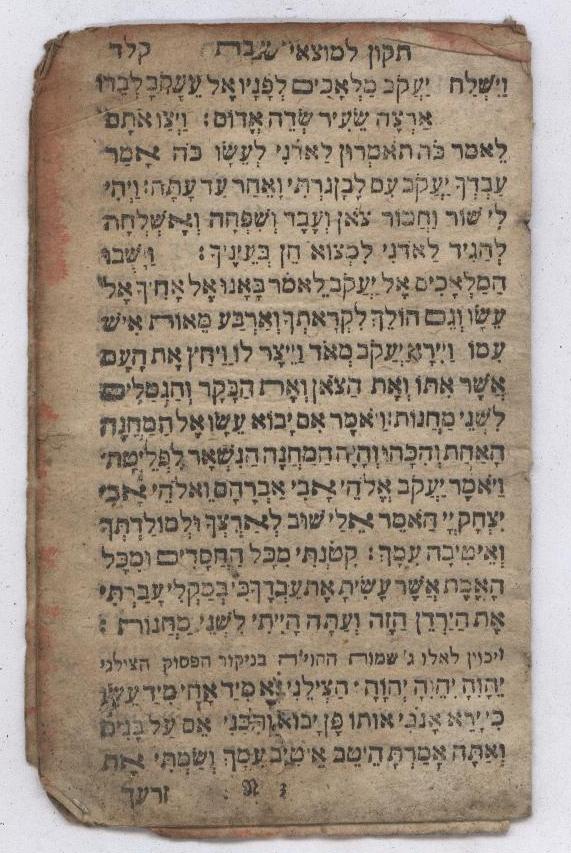 תקון למוצאי שבת קלד
וַיִּשְׁלַח יַעֲקֹב מַלְאָכִים לְפָנָיו אֶל עֵשָׂו
אַרְצָה שֵׂעִיר שְׂדֵה אֱדוֹם: וַיְצַו אֹתָם
לֵאמֹר כֹּה תֹאמְרוּן לַאדֹנִי לְעֵשָׂו כֹּה אָמַר
עַבְדְּךָ יַעֲקֹב עִם לָבָן גַּרְתִּי וָאֵחַר עַד עָתָּה: וַיְהִי
לִי שׁוֹר וַחֲמוֹר צֹאן וְעֶבֶד וְשִׁפְחָה וָאֶשְׁלְחָה
לְהַגִּיד לַאדֹנִי לִמְצוֹא חֵן בְּעֵינֶיךָ: וַיָּשֻׁבוּ
הַמַּלְאָכִים אֶל יַעֲקֹב לֵאמֹר בָּאנוּ אֶל אָחִיךָ אֶל
עֵשָׂו וְגַם הוֹלֵךְ לִקְרָאתְךָ וְאַרְבַּע מֵאוֹת אִישׁ
עִמּוֹ וַיִּירָא יַעֲקֹב מְאֹד וַיֵּצֶר לוֹ וַיַּחַץ אֶת הָעָם
אֲשֶׁר אִתּוֹ וְאֶת הַצֹּאן וְאֶת הַבָּקָר וְהַגְּמַלִּים
לִשְׁנֵי מַחֲנוֹת וַיֹּאמֶר אִם יָבוֹא עֵשָׂו אֶל הַמַּחֲנֶה
הָאַחַת וְהִכָּהוּ וְהָיָה הַמַּחֲנֶה הַנִּשְׁאָר לִפְלֵיטָה
וַיֹּאמֶר יַעֲקֹב אֱלֹהֵי אָבִי אַבְרָהָם וֵאלֹהֵי אָבִי
יִצְחָק יְיָ הָאֹמֵר אֵלַי שׁוּב לְאַרְצְךָ וּלְמוֹלַדְתְּךָ
וְאֵיטִיבָה עִמָּךְ: קָטֹנְתִּי מִכֹּל הַחֲסָדִים וּמִכָּל
הָאֱמֶת אֲשֶׁר עָשִׂיתָ אֶת עַבְדֶּךָ כִּי בְמַקְלִי עָבַרְתִּי
אֶת הַיַּרְדֵּן הַזֶּה וְעַתָּה הָיִיתִי לִשְׁנֵי מַחֲנוֹת:
ויכוין לאלו ג' שמות בניקוד הפסוק הצילני
יהוה יהוה יהוה הַצִּילֵנִי נָא מִיַּד אָחִי מִיַּד עֵשָׂו
כִּי יָרֵא אָנֹכִי אוֹתוֹ פֶּן יָבוֹא וְהִכַּנִי אֵם עַל בָּנִים
וְאַתָּה אָמַרְתָּ הֵיטֵב אֵיטִיב עִמָּךְ וְשַׂמְתִּי אֶת
זרעך